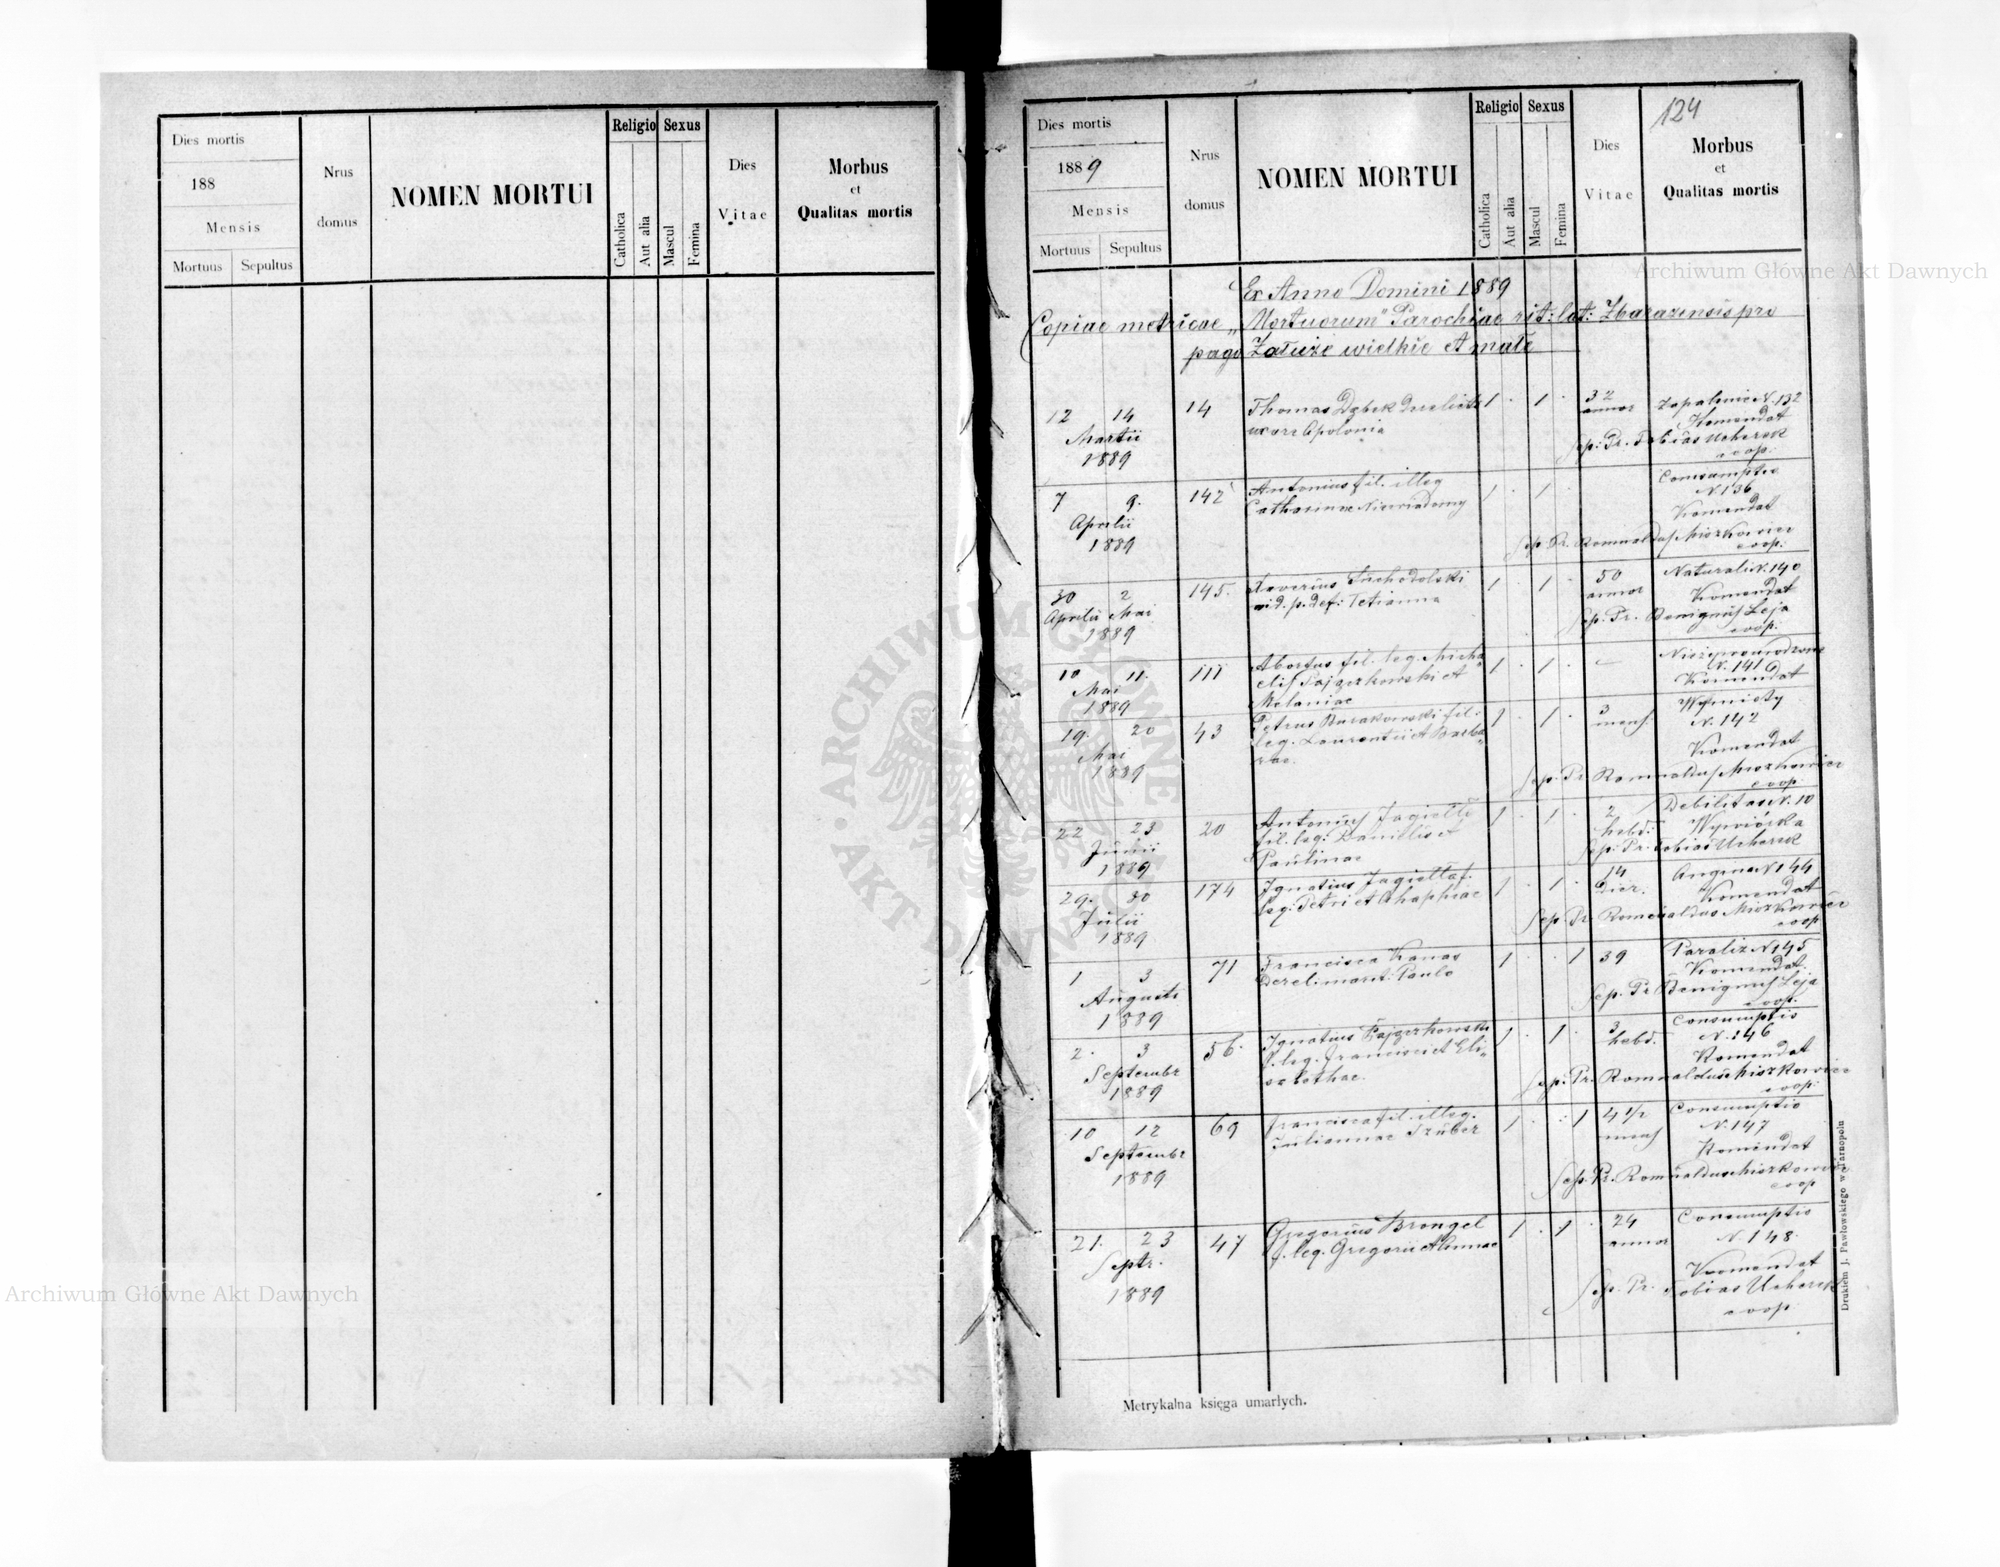 Dies mortis
188
Mensis
Mortuus Sepultus
Nrus
domus
NOMEN MORTUI
Religio Sexus
Catholica
Aut alia
Mascul
Femina
Dies
Vitae
Morbus
et
Qualitas mortis
124
Dies mortis
1889
Mensis
Mortuus Sepultus
Nrus
domus
NOMEN MORTUI
Religio Sexus
Catholica
Aut alia
Mascul
Femina
Dies
Vitae
Morbus
et
Qualitas mortis
Ex Anno Domini 1889
Copiae metricae „Mortuorum" Parochiae rit: lat: Zbarazensis pro
pago Załuże wielkie et małe
12 14 14 Thomas Dąbek 1 · 1 · 32 N. 132
Martii uxore Apolonia annor Komendat
1889 Sep: Pr. Tobias
coop.
7 9. 142 Antonius fil. illeg 1 · 1 · Consumptio
Aprilii Catharinae Niewiadomy N. 136
1889 Komendat
Sep. Pr. Romualdus
coop.
30 2 145. Xaverius Suchodolski 1 1 · 50 Naturalis N. 140
Aprilii Mai vid. p. def: Tetianna annor Komendat
1889 Sep. Pr. Benignus Leja
coop.
10 11. 111 Abortus fil. leg. Micha 1 · 1 · —
Mai elis et N. 141
1889 Melaniae Komendat
19. 20 43 Petrus fil. 1 · 1 · 3 Wymioty
Mai leg. Laurentii et Barba mens. N. 142
1889 rae. Komendat
Sep. Pr. Romualdus
coop.
22 23 20 Antonius Jagiełło 1 · 1 · 2 Debilitas N. 10
Junii fil. leg: Danillis et hebd: Wywiórka
1889 Paulinae Sep. Pr. Tobias
29. 30 174 Ignatius Jagiełło f. 1 · 1 · 14 Angina N 144
Julii leg: Petri et Ahaphiae Dier. Komendat
1889 Sep. Pr. Romualdus
coop
1 3 71 Francisca Kanas 1 · · 1 39 Paraliz N 145
Augusti derel. marit: Paulo Komendat
1889 Sep. Pr Benignus Leja
coop.
2. 3 56. Ignatius 1 · 1 · 3 Consumptio
Septembr f. leg. Francisci et Eli hebd. N. 146
1889 sabethae. Komendat
Sep. Pr. Romualdus
coop:
10 12 69 Francisca fil. illeg. 1 · · 1 4 1/2 Consumptio
Septembr Juliannae mens N. 147
1889 Komendat
Sep. Pr. Romualdus
coop
21. 23 47 Gregorius Brongel 1 · 1 · 24 Consumptio
Septr. f. leg. Gregorii et Annae annor N. 148.
1889 Komendat
Sep. Pr. Tobias
coop
Metrykalna księga umarłych.
Drukiem J. Pawłowskiego w Tarnopolu
Archiwum Główne Akt Dawnych
Archiwum Główne Akt Dawnych
ARCHIWUM GŁÓWNE AKT DAWNYCH